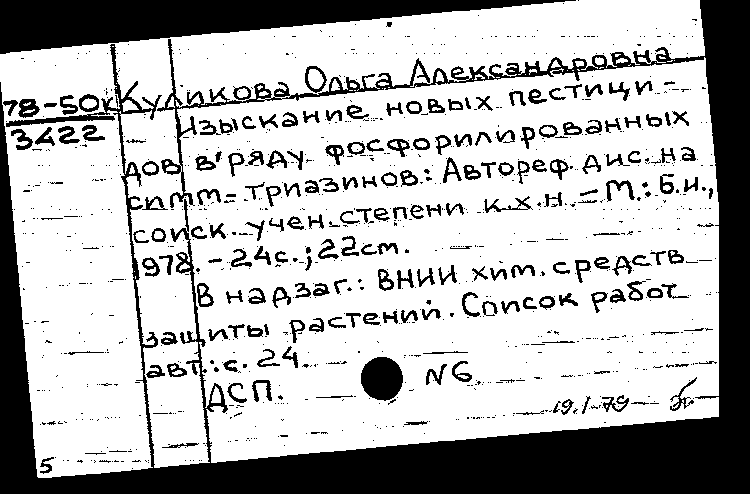 78-50к Куликова, Ольга Александровна
3422 Изыскание новых пестици-
дов в ряду фосфорилированных
симм-триазинов.: Автореф. дис. на
соиск. учен. степени к.х.н. - М.: Б.и.,
1978. - 24с.; 22см.
В надзаг.: ВНИИ хим. средств
защиты растений. Список работ
авт.: с. 24.
ДСП. N6
19.1-79
5